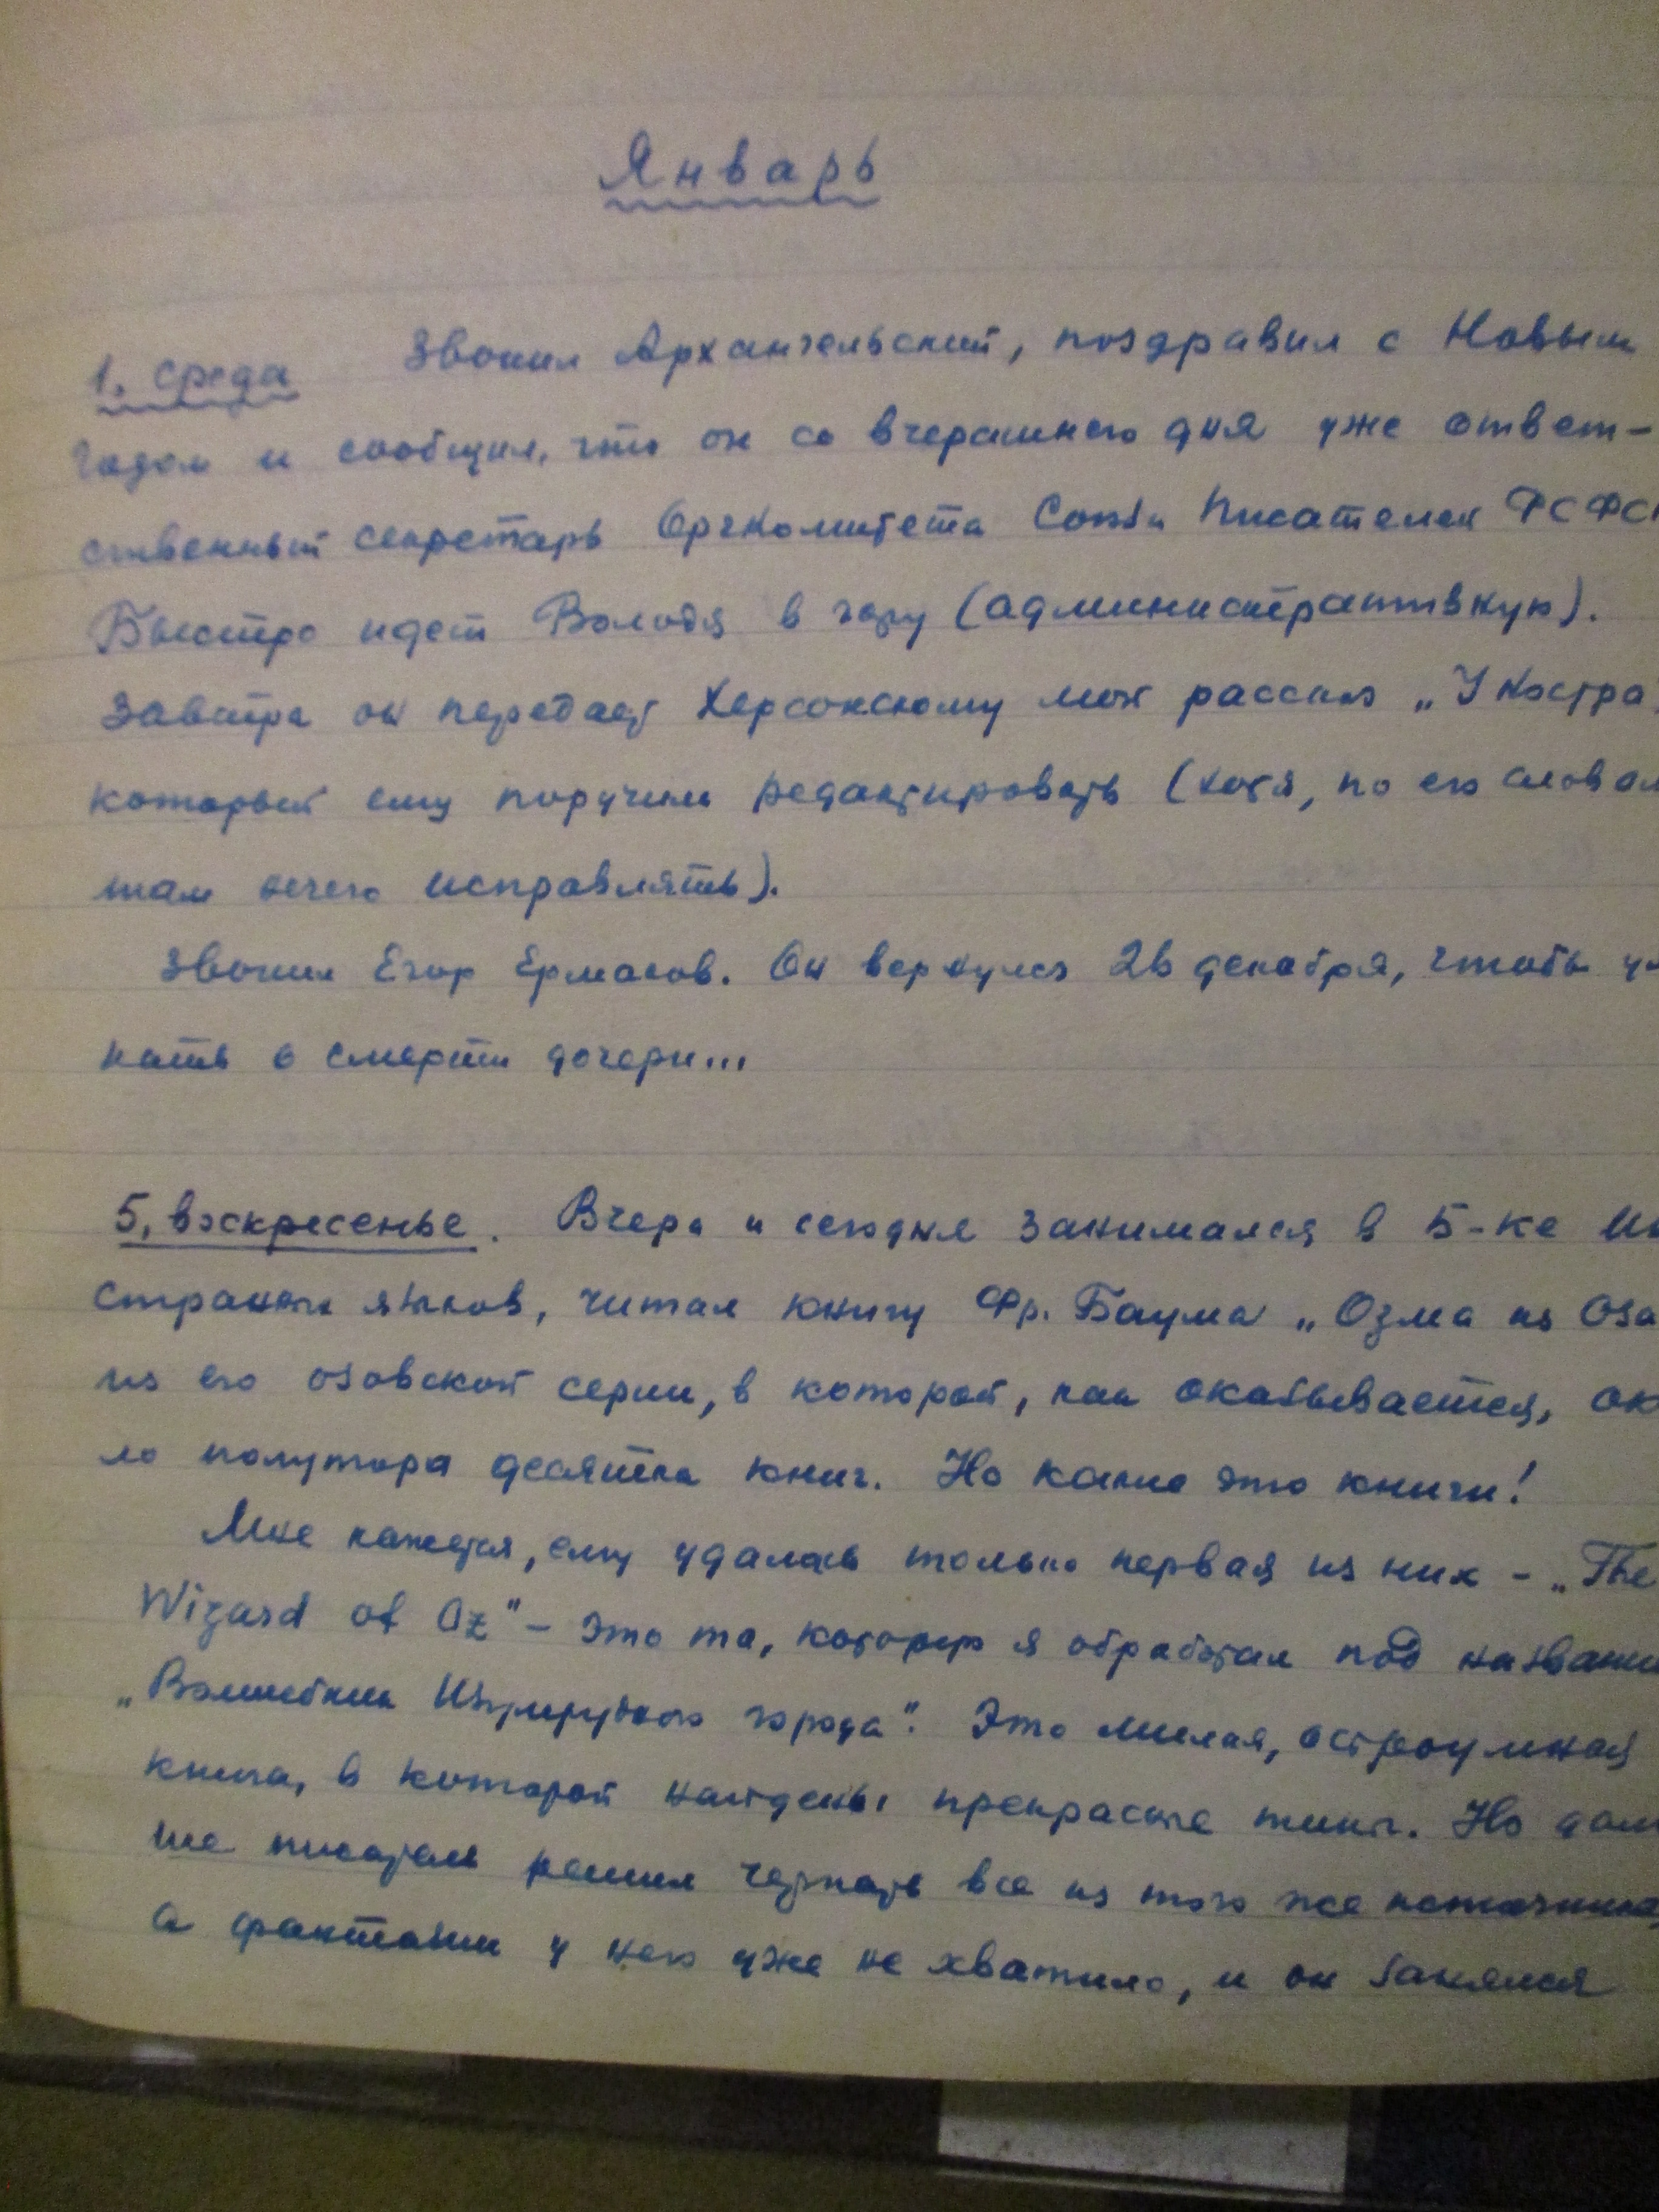 Январь
1. среда Звонил Архангельский, поздравил с Новым
годом и сообщил, что он со вчерашнего дня уже ответ-
ственный секретарь Оргкомитета Союза Писателей РСФС
Быстро идет Володя в гору (административную).
Завтра он передает Херсонскому мой рассказ „У костра
который ему поручили редактировать (хотя, по его словам
там нечего исправлять).
Звонил Егор Ермаков. Он вернулся 26 декабря, чтобы у
нать о смерти дочери...
5, воскресенье. Вчера и сегодня занимался в Б-ке Ин
странных языков, читал книгу Фр. Баума „Озма из Оза
из его озовской серии, в которой, как оказывается, ок
ло полутора десятка книг. Но какие это книги!
Мне кажется, ему удалась только первая из них – „The
Wizard of Oz" – это та, которую я обработал под названи
„Волшебник Изумрудного города". Это милая, остроумная
книга, в которой найдены прекрасные типы. Но даль
ше писатель решил черпать все из того же источника,
а фантазии у него уже не хватило, и он занялся